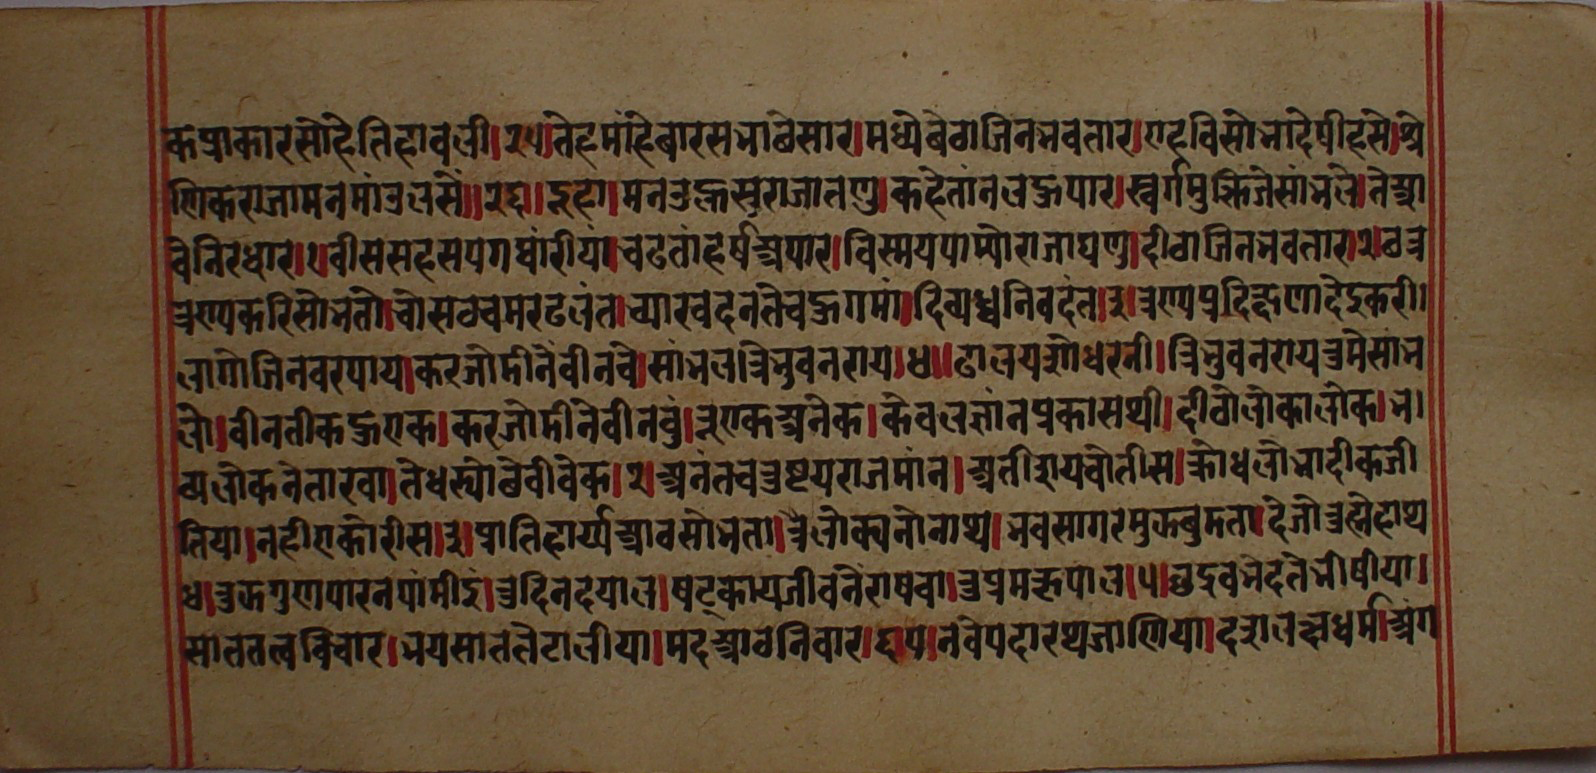 कप्राकारसोहेतिहावली।२५।तेहमांहेबारसभाछेसार।मध्येबेठाजिनभवतार।एहविसोभादेषीहसे।श्रे
णिकराजामनमांउलसें॥२६॥दूहा।मनउह्लस्यूराजातणु।कहेतांनलहुपार।स्वर्गमुक्तिजेसांभले।तेआ
वेनिरधार।१।वीससहसपगथांरीयां।चढतांहर्षअपार।विस्मयपाम्योराजाघणु।दीठाजिनभवतार।२।छत्र
त्रण्यकरिसोभतो।चोसठचमरढलंत।च्यारवदनतेचहुगमां।दिव्यध्वनिवदंत।३।त्रण्यप्रदिक्षणादेइकरी।
लागोजिनवरपाय।करजोडीनेंवीनवे।सांभलत्रिभुवनराय।४॥ढालयशोधरनी।त्रिभुवनरायतुमेसांभ
लो।वीनतीकहुएक।करजोडीनेवीनवुं।तूएकअनेक।केवलज्ञांनप्रकासथी।दीठोलोकालोक।भ।
व्यलोकनेतारवा।तेधस्योछेवीवेक।२।अनंतचतुष्टयराजमांन।अतीशयचोतीस।क्रोधलोभादीकजी
तिया।नहीएकोरीस।३।प्रातिहार्य्यआठसोभता।त्रैलोक्यनोनाथ।भवसागरमुझबुडता।देजोतुह्मेहाथ
४।तुझगुणपारनपांमीइं।तुदिनदयाल।षट्कायजीवनेराषवा।तुप्रभकृपाल।५।छद्रवभेदतेभीषीया।
साततत्वविचार।भयसाततेंटालीया।मदआठनिवार।६।प।नवेपदारथजाणिया।दशलक्षधर्म।अंग